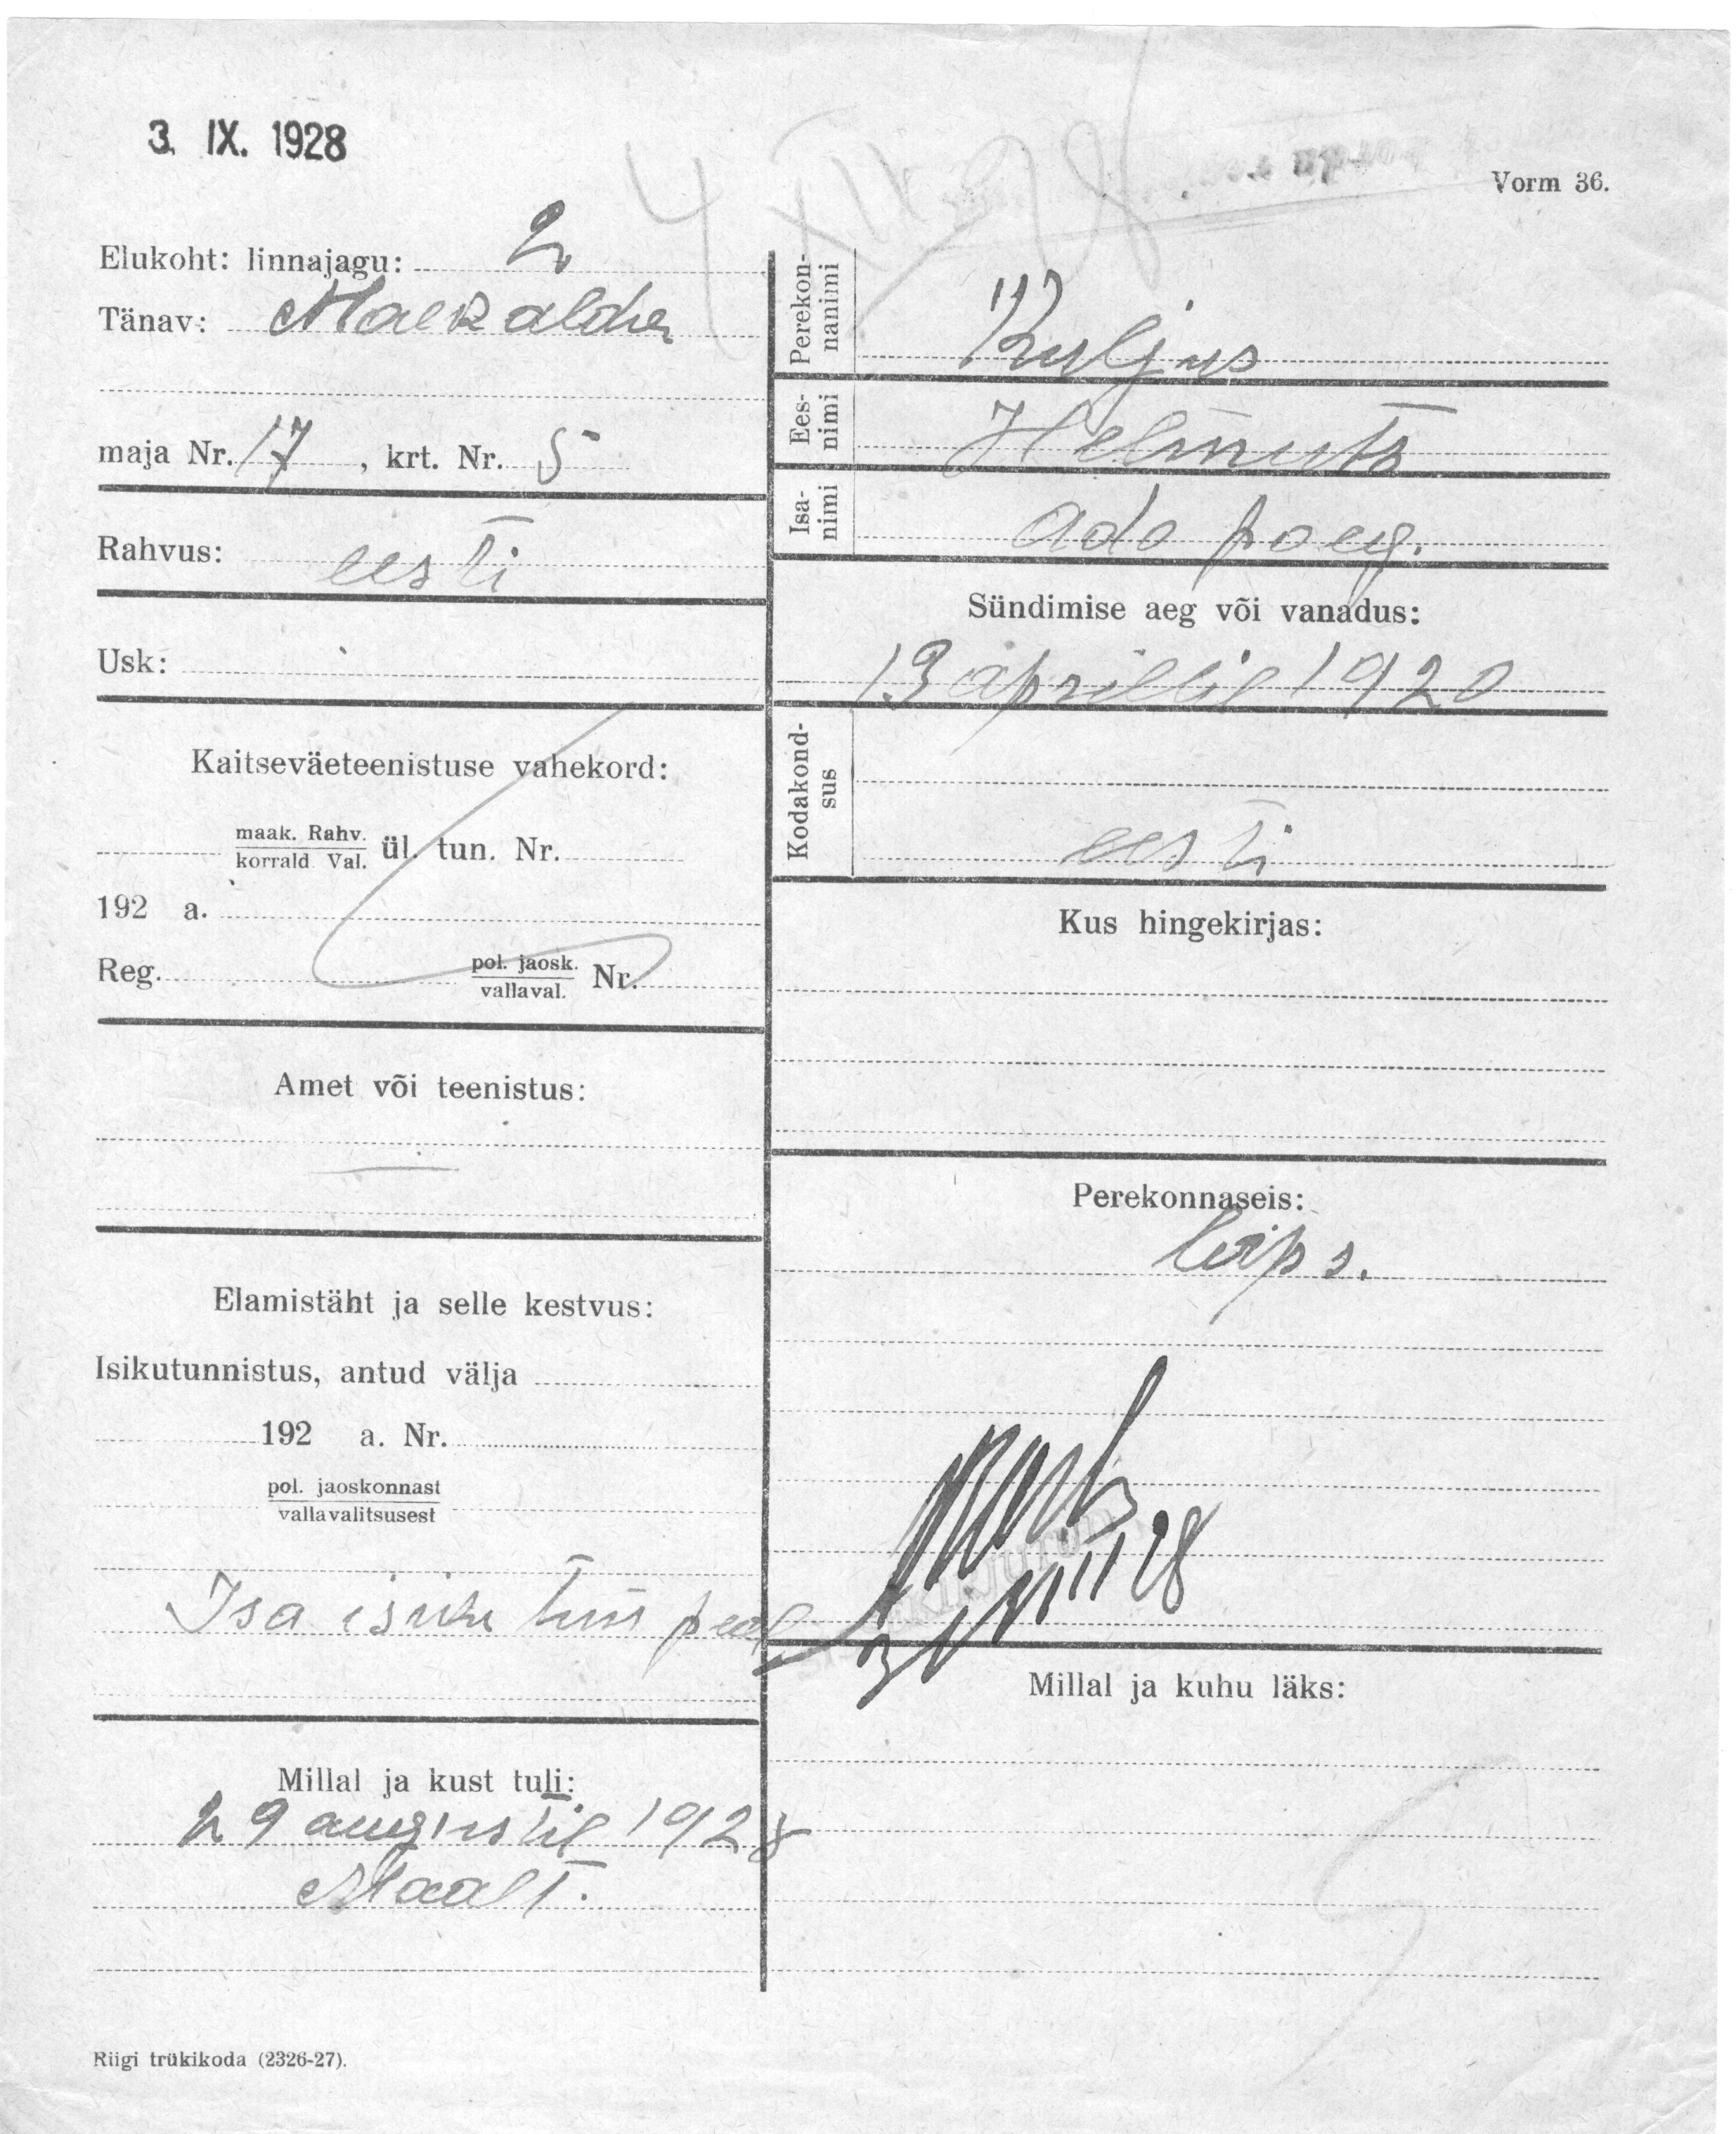 3. IX. 1928
4 XII 28
Vorm 36.
Elukoht: linnajagu: 2
Tänav: Maekalda
maja Nr. 17, krt. Nr. 5
Rahvus: eesti
Usk:
Kaitseväeteenistuse vahekord:
maak. Rahv.
korrald Val. ül. tun. Nr.
192 a.
Reg. pol. jaosk.
vallaval. Nr.
Amet või teenistus:
Elamistäht ja selle kestvus:
Isikutunnistus, antud välja
192 a. Nr.
pol. jaoskonnast
vallavalitsusest
Isa isiku tun peal
Millal ja kust tuli:
29 augustil 1928
Maalt.
Perekon-
nanimi Kuljus
Ees-
nimi Helmuth
Isa-
nimi Ado poeg.
Sündimise aeg või vanadus:
13 aprillil 1920
Kodakond-
sus eesti
Kus hingekirjas:
Perekonnaseis:
laps.
Millal ja kuhu läks:
Riigi trükikoda (2326-27).